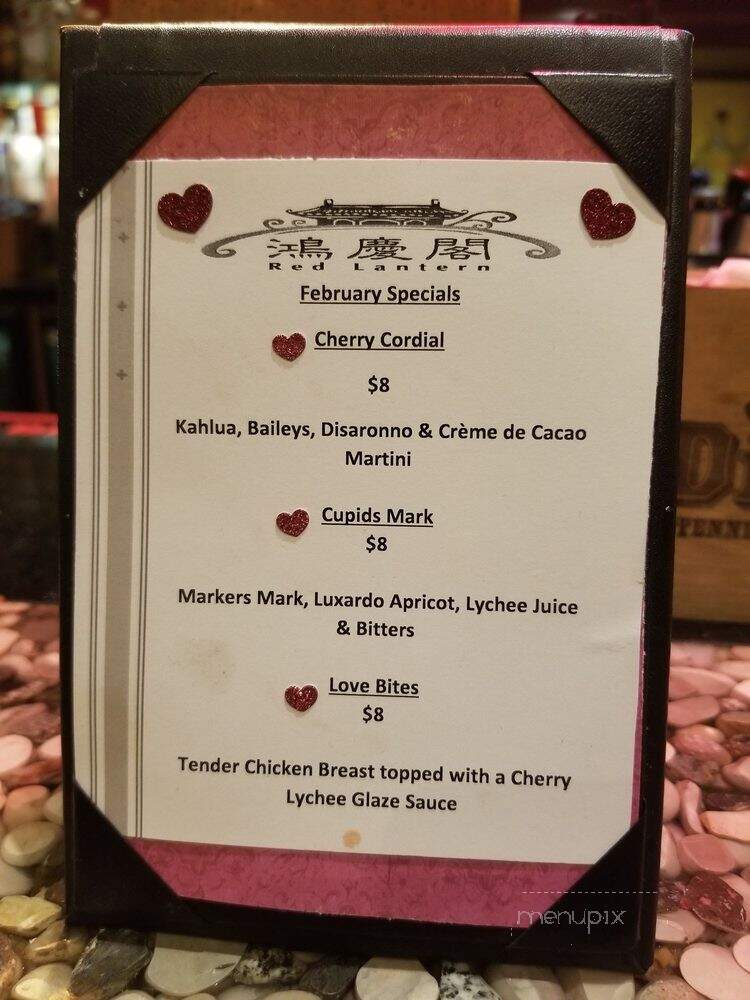 鴻慶閣
Red Lantern
February Specials
Cherry Cordial
$8
Kahlua, Baileys, Disaronno & Crème de Cacao
Martini
Cupids Mark
$8
Markers Mark, Luxardo Apricot, Lychee Juice
& Bitters
Love Bites
$8
Tender Chicken Breast topped with a Cherry
Lychee Glaze Sauce
menupix